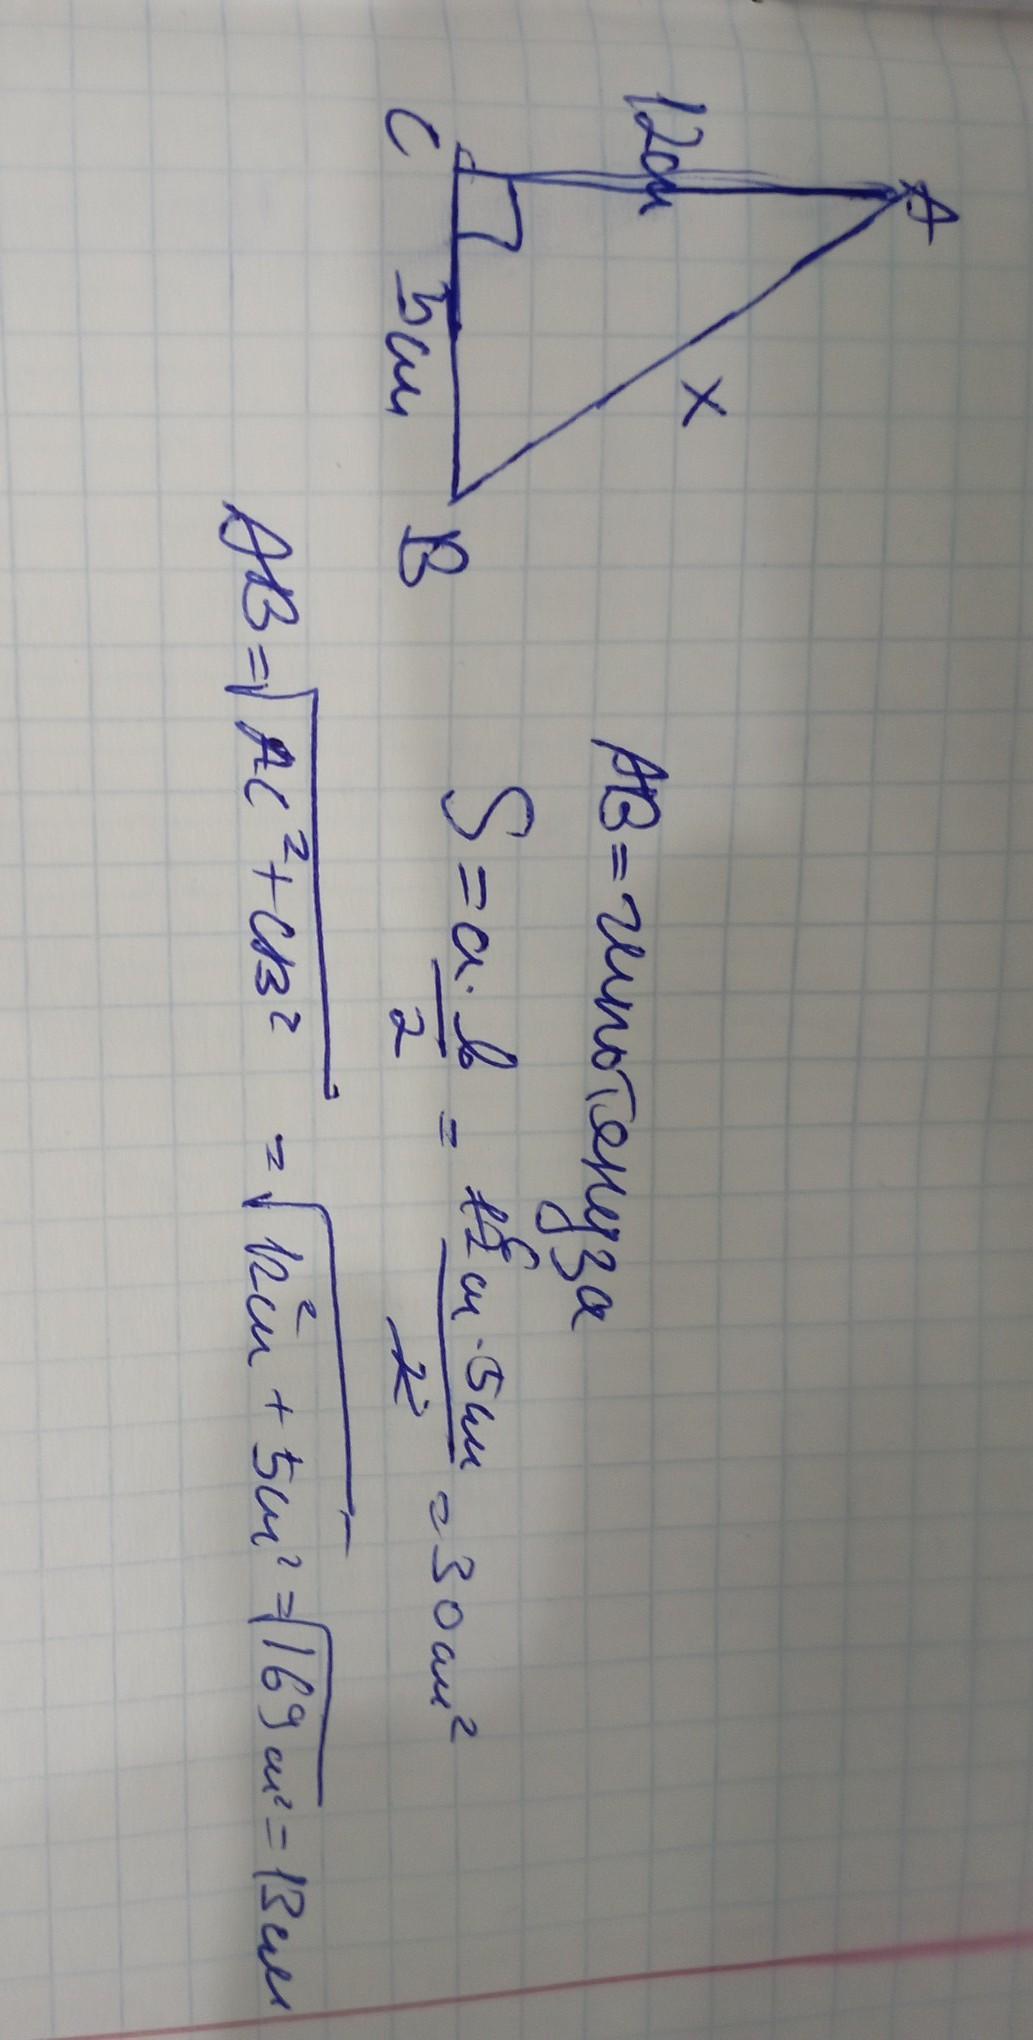 A
12см
x
C
5см
B
AB = гипотенуза
S = a · b / 2 = 12см · 5см / 2 = 30см²
AB = √AC² + CB² = √12см² + 5см² = √169см² = 13см